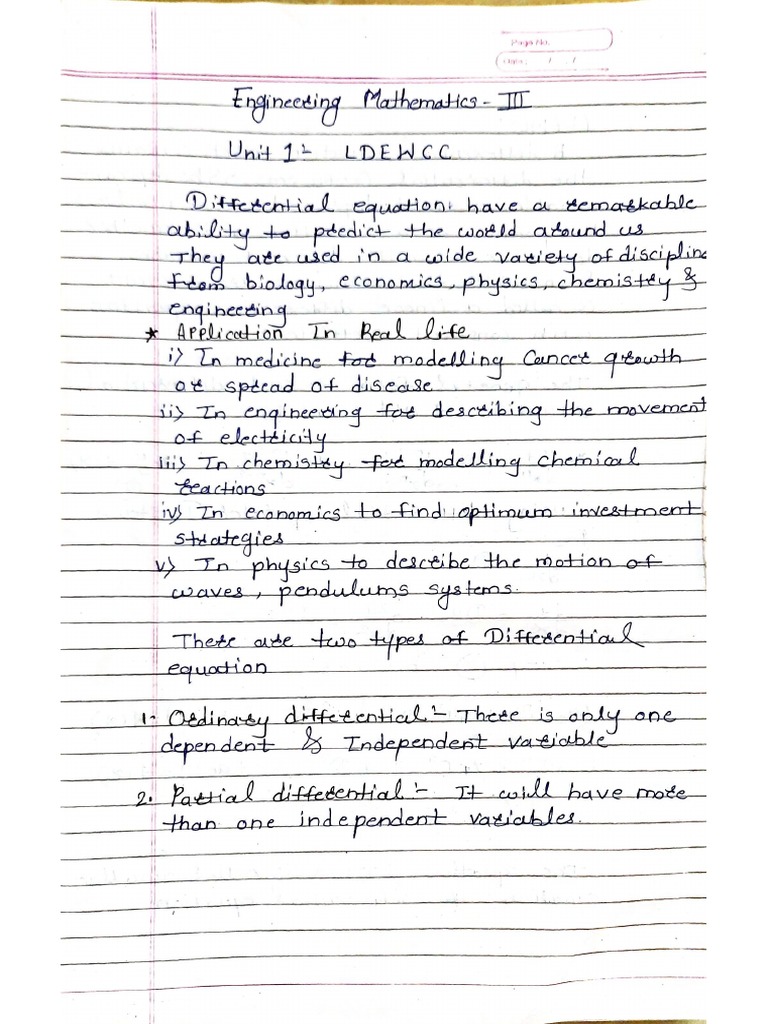 Page No.
Date: / /
Engineering Mathematics - III
Unit 1:- LDEWCC
Differential equation have a remarkable
ability to predict the world around us
They are used in a wide variety of discipline
from biology, economics, physics, chemistry &
engineering
* Application In Real life
i) In medicine for modelling Cancer growth
or spread of disease
ii) In engineering for describing the movement
of electricity
iii) In chemistry for modelling chemical
reactions
iv) In economics to find optimum investment
strategies
v) In physics to describe the motion of
waves, pendulums systems.
There are two types of Differential
equation
1- Ordinary differential:- There is only one
dependent & Independent variable
2. Partial differential:- It will have more
than one independent variables.